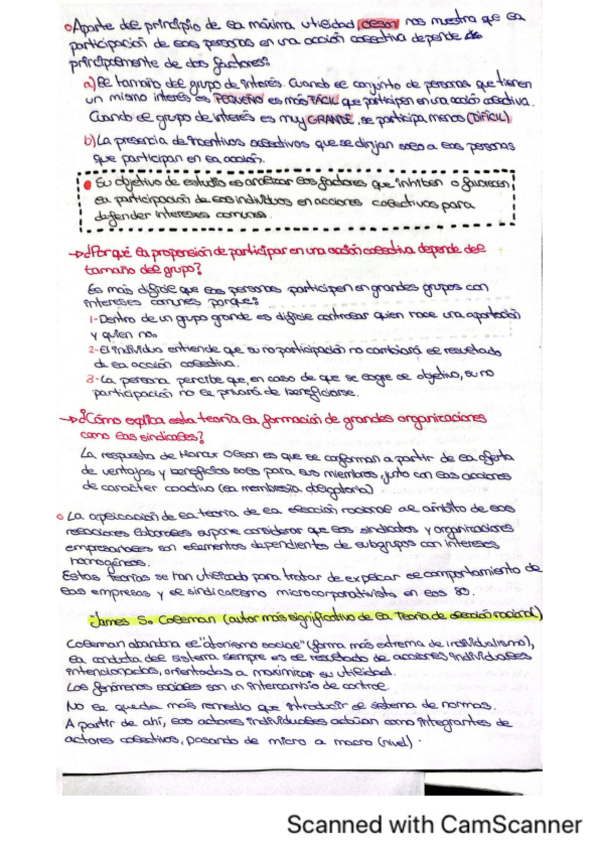 ○Aparte del principio de la máxima utilidad, OLSON nos muestra que la
participación de las personas en una acción colectiva depende de
principalmente de dos factores:
a) El tamaño del grupo de interés. Cuando el conjunto de personas que tienen
un mismo interés es PEQUEÑO es más FÁCIL que participen en una acción colectiva.
Cuando el grupo de interés es muy GRANDE, se participa menos (DIFÍCIL)
b) La presencia de incentivos colectivos que se dirijan solo a las personas
que participan en la acción.
● Su objetivo de estudio es analizar los factores que inhiben o favorecen
la participación de los individuos en acciones colectivas para
defender intereses comunes.
→¿Por qué la propensión de participar en una acción colectiva depende del
tamaño del grupo?
Es más difícil que las personas participen en grandes grupos con
intereses comunes porque:
1- Dentro de un grupo grande es difícil controlar quien hace una aportación
y quien no.
2- El individuo entiende que su no participación no cambiará el resultado
de la acción colectiva.
3- La persona percibe que, en caso de que se logre el objetivo, su no
participación no le privará de beneficiarse.
→¿Cómo explica esta teoría la formación de grandes organizaciones
como los sindicatos?
La respuesta de Mancur Olson es que se conforman a partir de la oferta
de ventajas y beneficios solo para sus miembros, junto con las acciones
de carácter coactivo (la membresía obligatoria)
○ La aplicación de la teoría de la elección racional al ámbito de las
relaciones laborales supone considerar que los sindicatos y organizaciones
empresariales son elementos dependientes de subgrupos con intereses
homogéneos.
Estas teorías se han utilizado para tratar de explicar el comportamiento de
las empresas y el sindicalismo microcorporativista en los 80.
-James S. Coleman (autor más significativo de la Teoría de elección racional)
Coleman abandona el "atomismo social" (forma más extrema de individualismo),
la conducta del sistema siempre es el resultado de acciones individuales
intencionadas, orientadas a maximizar su utilidad.
Los fenómenos sociales son un intercambio de control.
No le queda más remedio que introducir el sistema de normas.
A partir de ahí, los actores individuales actúan como integrantes de
actores colectivos, pasando de micro a macro (nivel).
Scanned with CamScanner